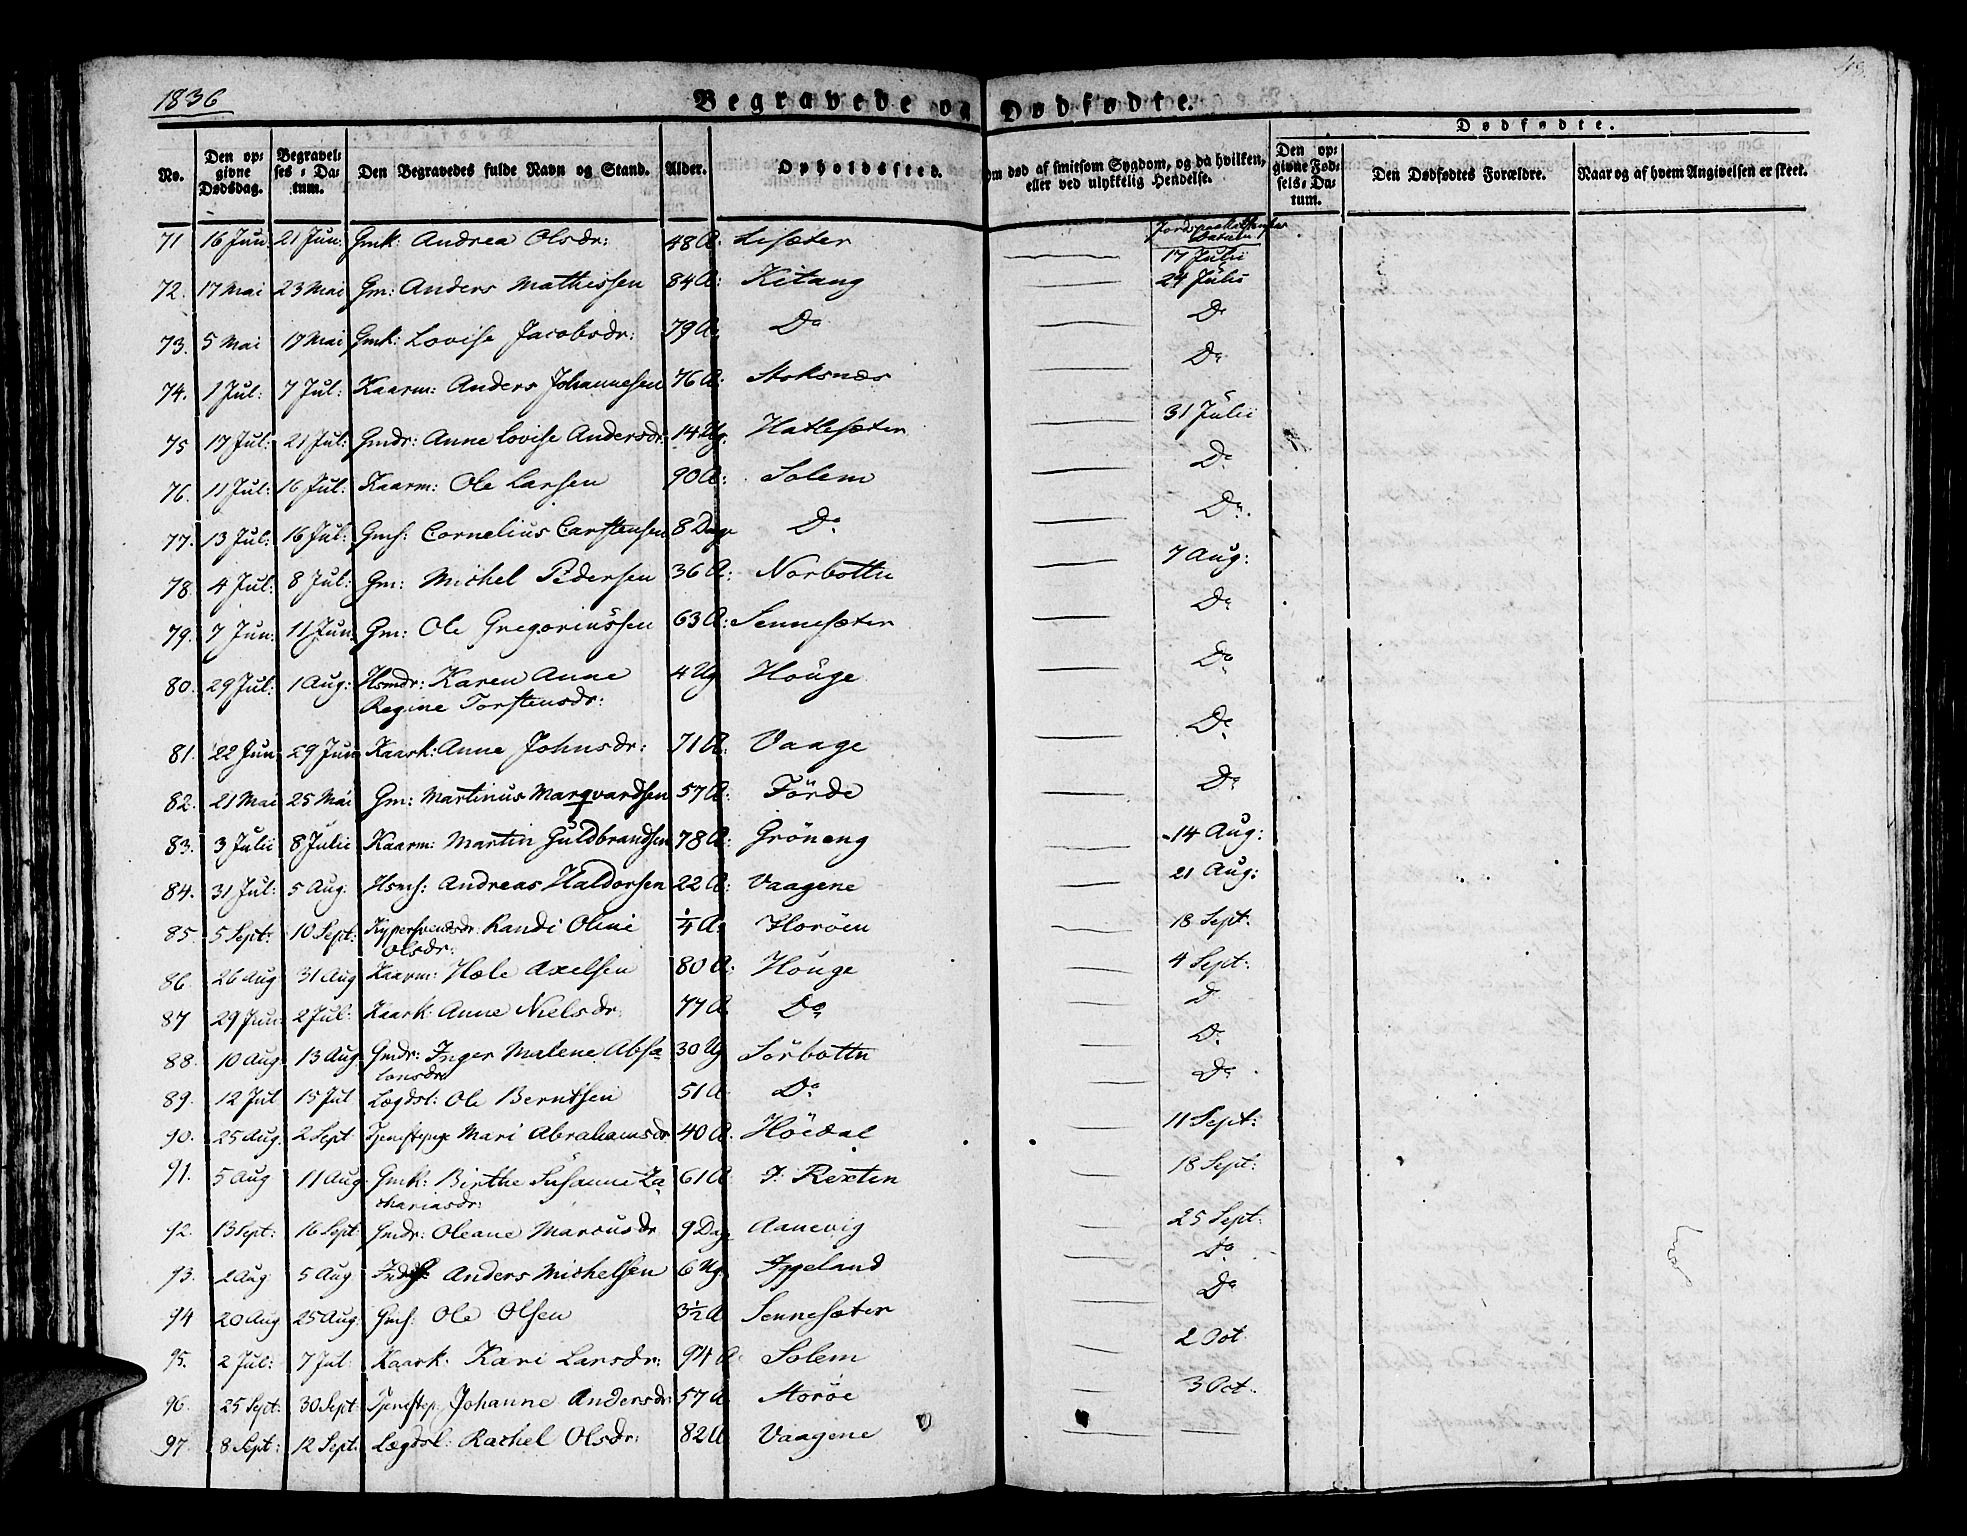 1836
Begravede og Dødfødte.
No. Den opgivne Dødsdag. Begravelses-Datum. Den Begravedes fulde Navn og Stand. Alder. Opholdssted. Om død af smitsom Sygdom, og da hvilken, eller ved ulykkelig Hendelse. Dødfødte. Den opgivne Fødsels-Datum. Den Dødfødtes Forældre. Naar og af hvem Angivelsen er skeet.
71 16 Jun 21 Jun: Gmk: Andrea Olsdr: 48 A: Lisæter — 17 Julii
72. 17 Mai 23 Mai Gm: Anders Mathissen 84 A: Kitang 24 Julii
73. 5 Mai 17 Mai Gmk: Lovise Jacobsdr: 79 A. Do — Do
74. 1 Jul: 7 Jul: Kaarm: Anders Johannesen 76 A: Stoksnæs — Do
75 17 Jul: 21 Jul: Gmdr: Anne Lovise Andersdr. 14 Ug. Hatlesæter — 31 Julii
76. 11 Jul: 16 Jul: Kaarm: Ole Larsen 90 A: Solem — Do
77. 13 Jul: 16 Jul: Gms: Cornelius Carstensen 8 Dage Do — Do.
78. 4 Jul: 8 Jul: Gm: Michel Pedersen 36 A: Norbottn — 7 Aug:
79. 7 Jun: 11 Jun: Gm: Ole Gregoriussen 63 A: Sennesæter — Do
80. 29 Jul: 1 Aug: Hsmdr: Karen Anne 4 Ug Houge — Do
Regine Torstensdr:
81. 22 Jun 29 Jun Kaark: Anne Johnsdr: 71 A: Vaage — Do
82. 21 Mai 25 Mai Gm: Martinus Marqvardsen 57 A: Förde — Do
83. 3 Julii 8 Julii Kaarm: Martin Guldbrandsen 78 A: Gröneng — 14 Aug:
84. 31 Jul: 5 Aug: Hsms: Andreas Haldorsen 22 A: Vaagene — 21 Aug:
85. 5 Sept: 10 Sept: Randi Oline ¼ A: Horöen — 18 Sept:
Olsdr:
86. 26 Aug 31 Aug Kaarm: Hæle Axelsen 80 A: Houge — 4 Sept:
87 29 Jun: 2 Jul: Kaark: Anne Nielsdr: 77 A. Do — D
88. 10 Aug: 13 Aug: Gmdr: Inger Malene Absa- 30 Ug Sörbottn — Do
lonsdr
89. 12 Jul 15 Jul Lægdsl: Ole Berntsen 51 A: Do — Do
90. 25 Aug. 2 Sept Tjenestepige Mari Abrahamsdr 40 A. Höidal — 11 Sept:
91. 5 Aug 11 Aug Gmk: Birthe Susanne Za- 61 A I: Rexten — 18 Sept:
chariasdr:
92. 13 Sept: 16 Sept Gmdr: Oleane Marcusdr 9 Dag. Aanevig — 25 Sept:
93. 2 Aug 5 Aug Anders Michelsen 6 Ug. Iggeland — Do
94 20 Aug 25 Aug: Gms: Ole Olsen 3½ A Sennesæter — Do
95. 2 Jul: 7 Jul: Kaark: Kari Larsdr: 94 A: Solem — 2 Oct.
96. 25 Sept: 30 Sept Tjenestep. Johanne Andersdr: 57 A. Storöe — 3 Oct.
97. 8 Sept: 12 Sept: Lægdsl: Rachel Olsdr: 82 A Vaagene — —